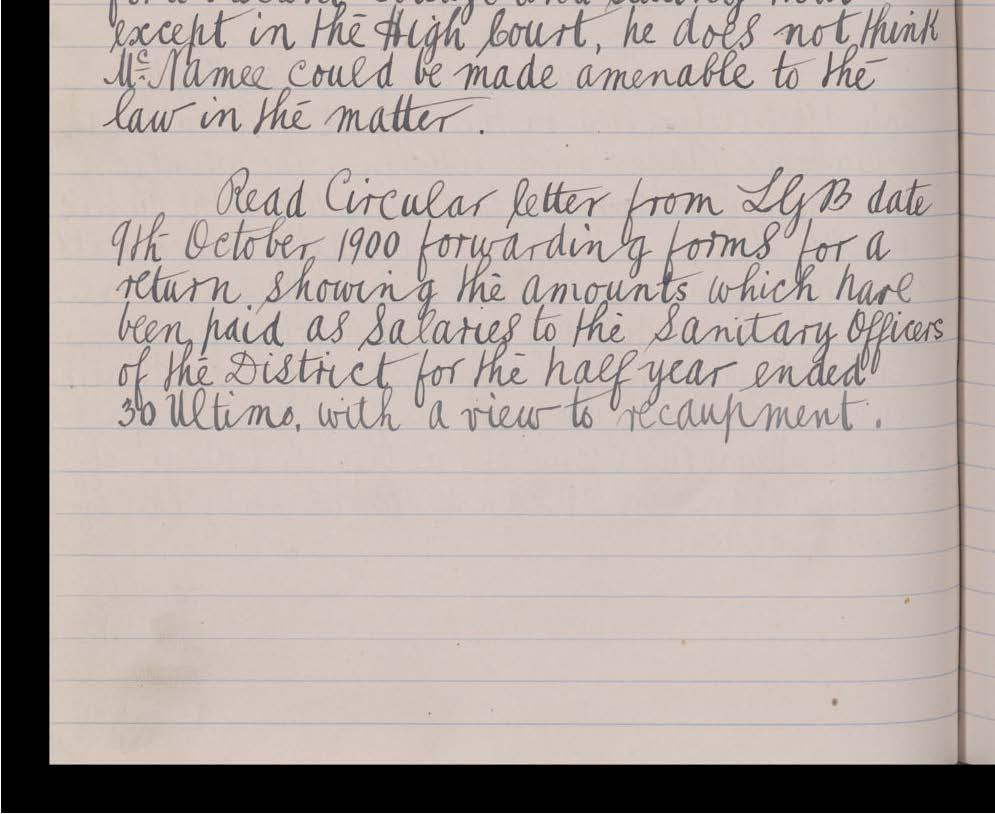 for a vacant cottage and
except in the High Court, he does not think
Mc. Namee could be made amenable to the
law in the matter.
Read Circular letter from LGB date
9th October 1900 forwarding forms for a
return showing the amounts which have
been paid as Salaries to the Sanitary Officers
of the District for the half year ended
30 Ultimo, with a view to recaupment.